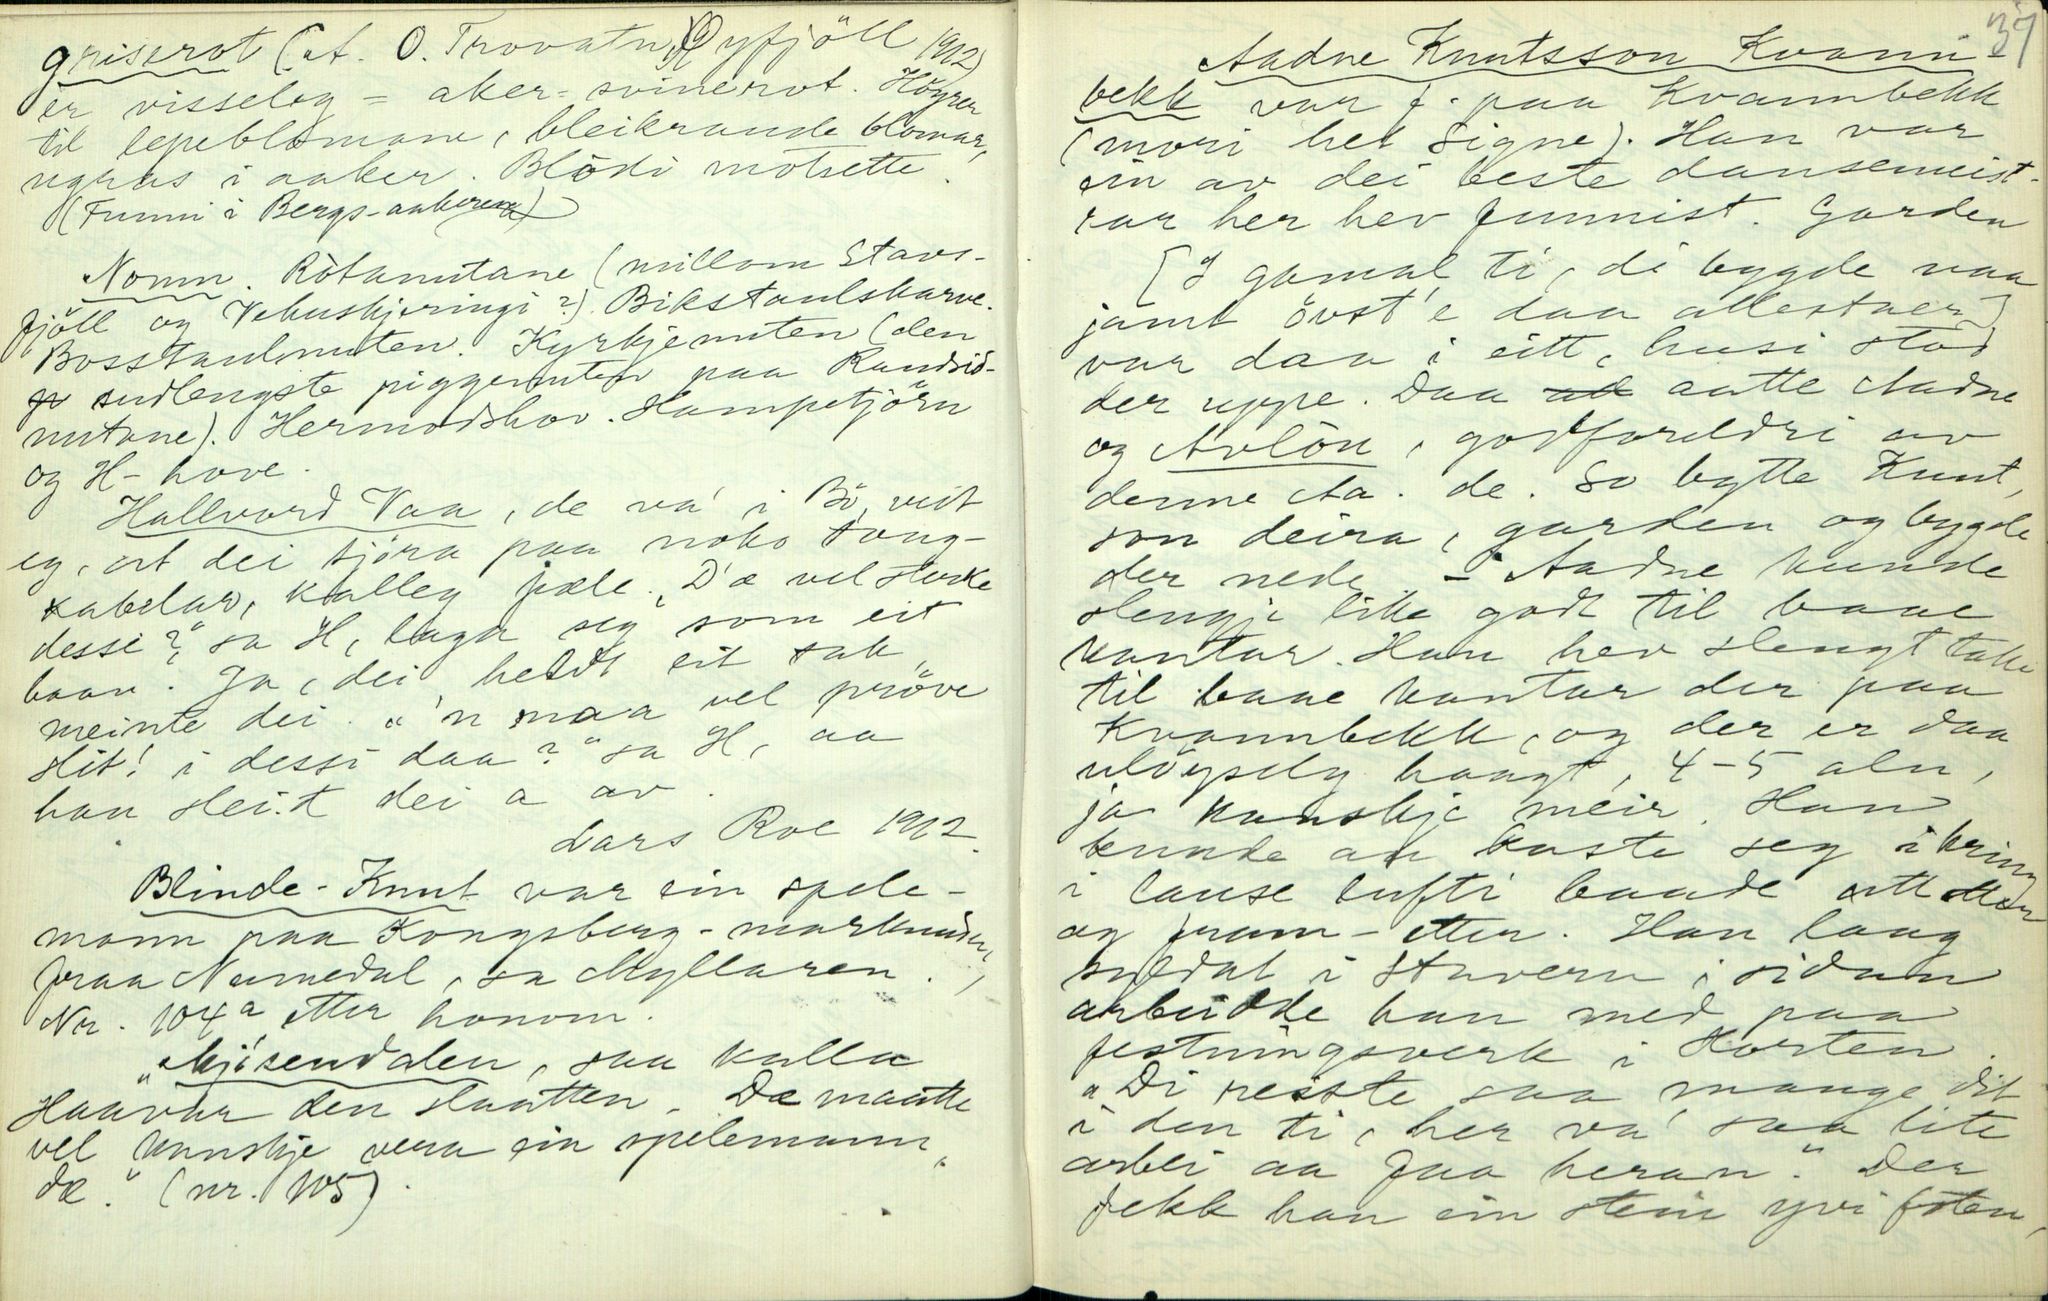 griserot (at. O. Trovatn, Öyfjöll 1912)
er visseleg = aker-svinerot. Höyrer
til lepeblomane, bleikraude blomar,
ugras i aaker. Blödi motsette.
(Funni i Bergs-aakerenn)
Nomn. Ròtanutane (millom Stavs-
fjöll og Vehuskjeringi?). Bikstaulskarve.
Bosstaulnuten. Kyrkjenuten (den
sudlengste piggenuten paa Raudsid-
nutane). Hermodshov. Hampetjörn
og H-hove.
Hallvord Vaa, de va' i Bö, veit
eg, at dei tjöra paa noko toug-
kabelar, kalleg pæle. "D'æ vel sterke
dessi?" sa H, laga seg som eit
baan. Ja, dei heldt eit tak,
meinte dei. "'n maa vel pröve
slit! i dessi daa?" sa H, aa
han slei.t dei a av.
Lars Roe 1912.
Blinde-Knut var ein spele-
mann paa Kongsberg-marknaden,
fraa Numedal, sa Myllaren.
Nr. 104a etter honom.
"Mjösendalen, saa kalla
Haavar den slaatten. De maatte
vel kunskje vera ein spelemann,
dæ." (nr. 105).
37
Aadne Knutsson Kvann-
bekk var f. paa Kvannbekk
(mori het Signe). Han var
ein av dei beste dansemeist-
rar her hev funnist. Garden
[I gamal ti, di bygde naa
jamt övst'e daa allestaer]
var daa i eitt, husi stod
der uppe. Daa aatte Aadne
og Avlòn, godforeldri av
denne Aa. de. So bytte Knut,
son deira, garden og bygde
der nede. - Aadne kunde
slengje like godt til baae
kantar. Han hev slengt take
til baae kantar der paa
Kvannbekk, og der er daa
ulöyseleg haagt, 4-5 aln,
ja kanskje meir. Han
kunde au kaste seg ikring
i lause lufti baade att etter
og fram-etter. Han laag
soldat i Stavern, sidan
arbeidde han med paa
festningsverk i Horten.
"Di reiste saa mange dit
i den ti, her va' saa lite
arbei aa faa heran." Der
fekk han ein stein yvi foten,